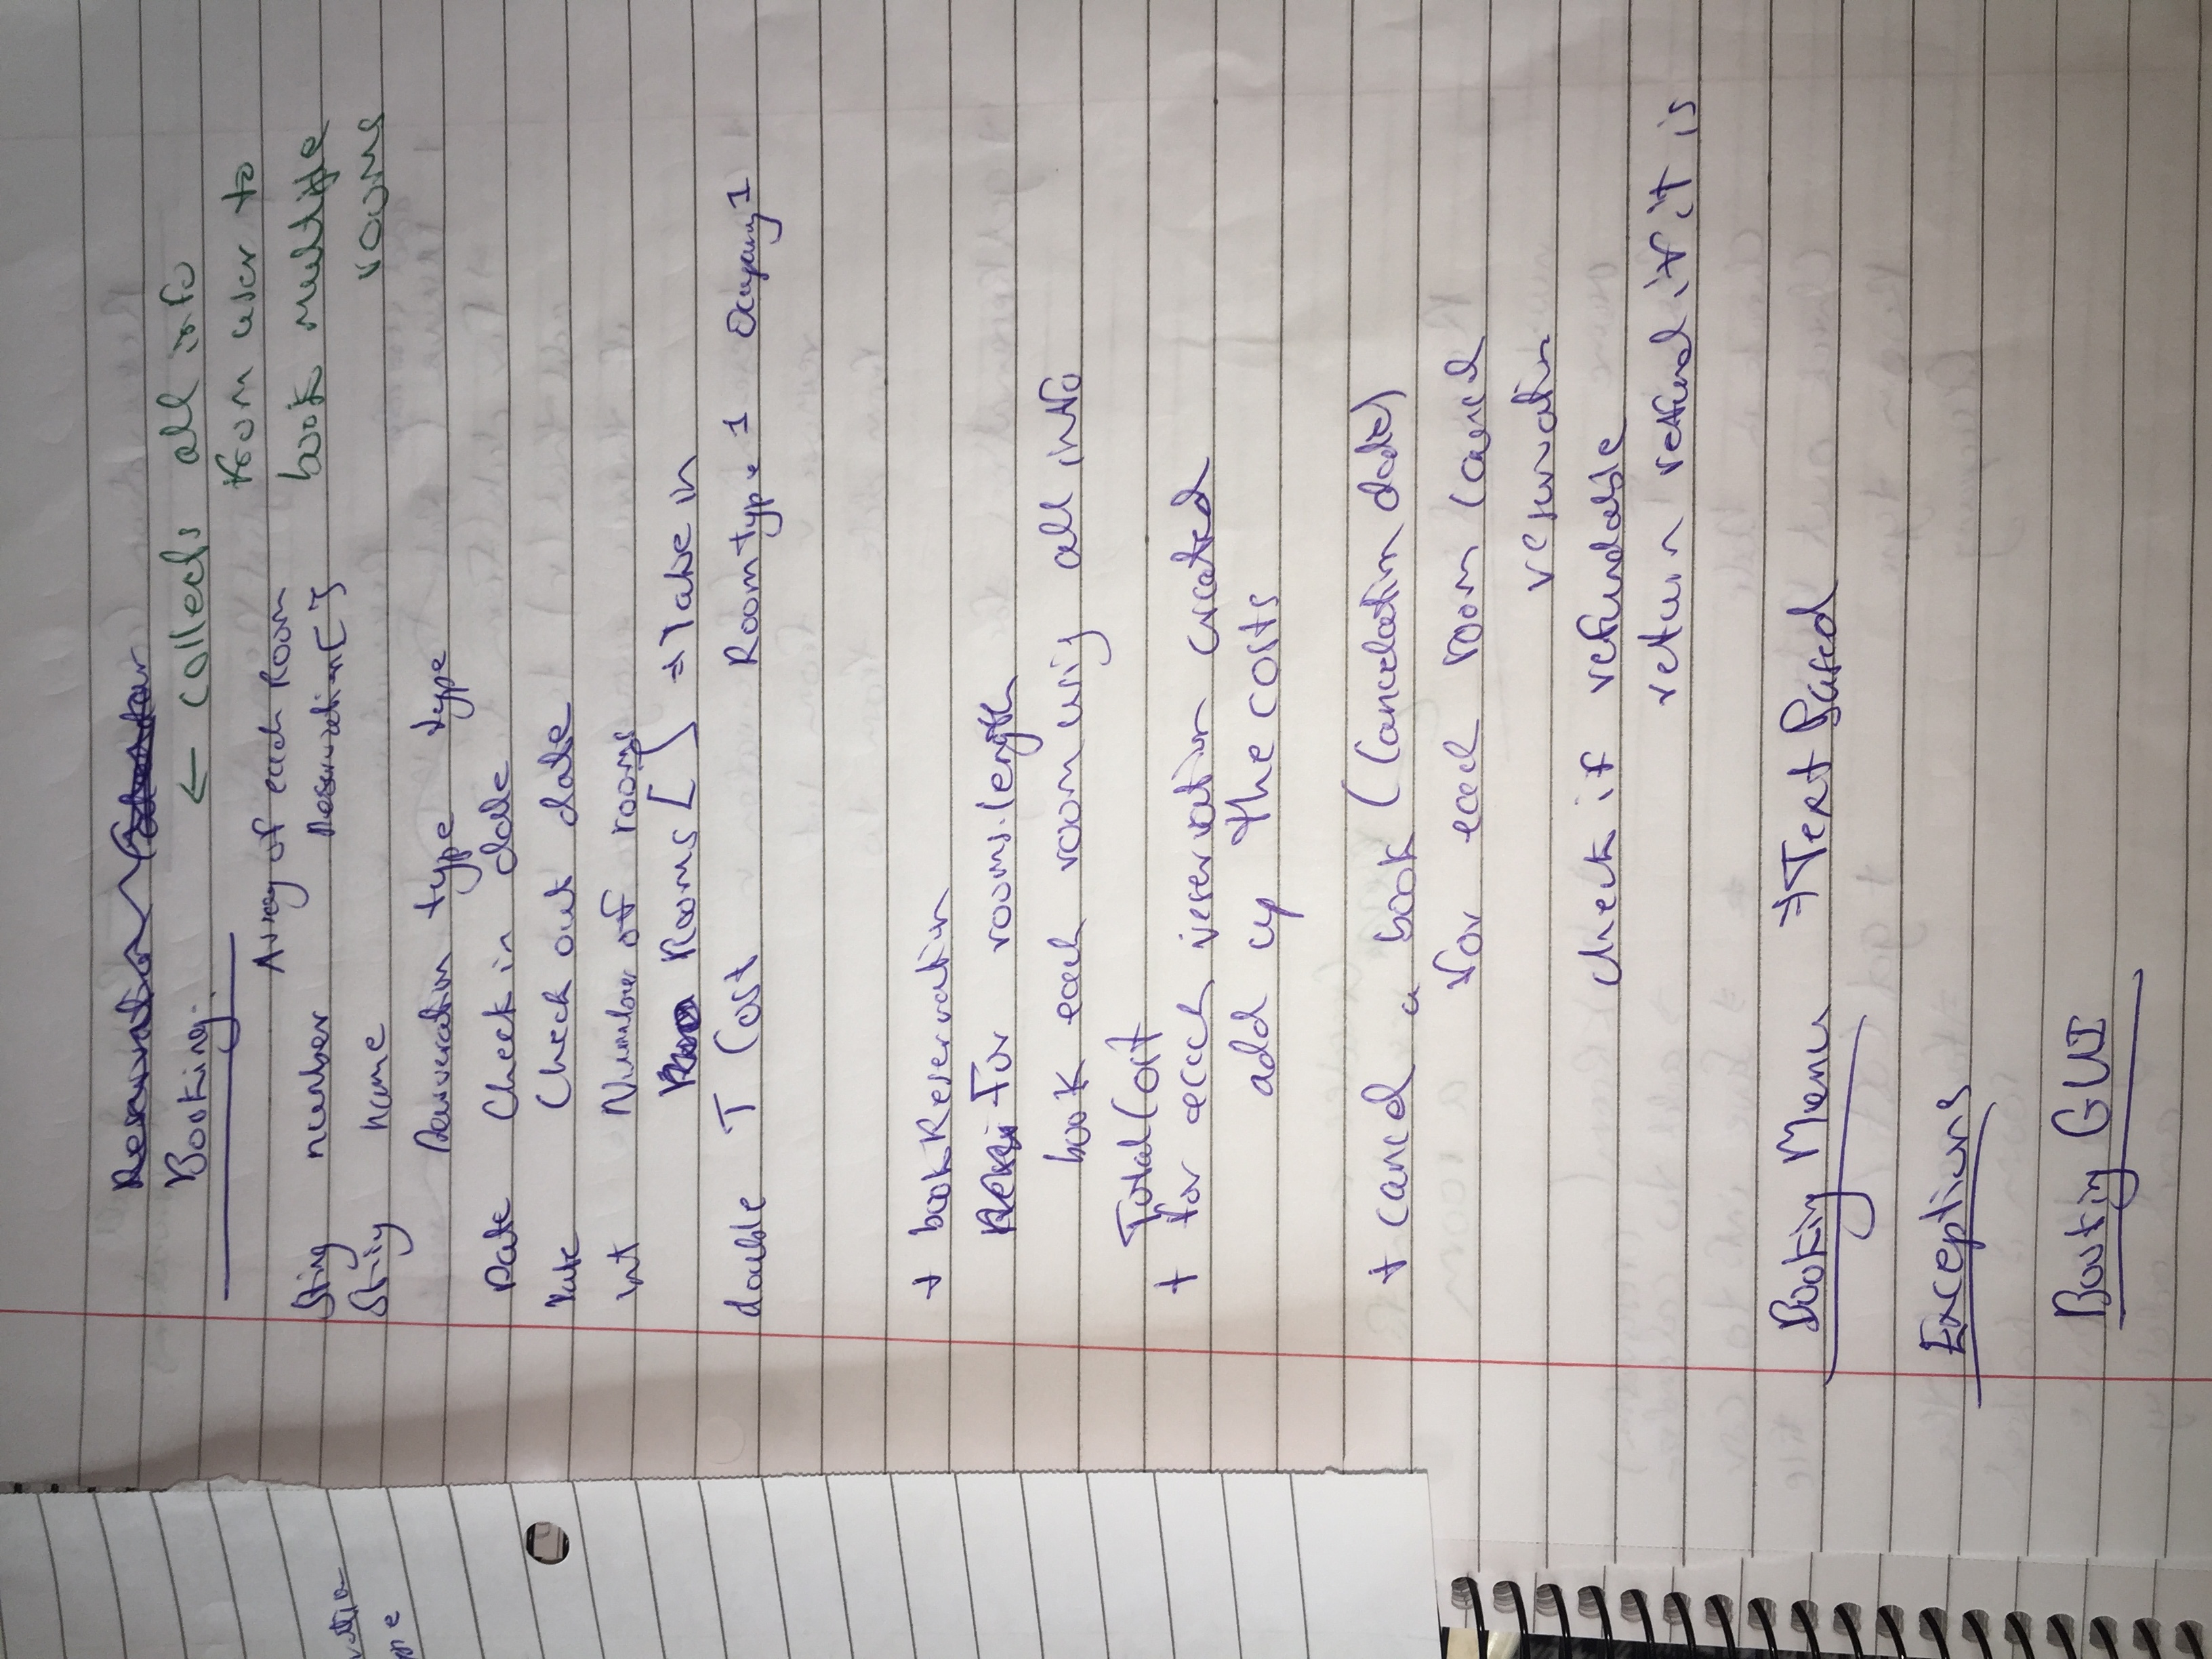 Booking:
← collects all info
from user to
book multiple
rooms
Array of each Room
String number Reservation[]
String name
Reservation type type
Date Check in date
Date Check out date
int Number of rooms
Rooms [] → Take in
double T Cost Room type 1 Occupancy 1
+ bookReservation
For rooms.length
book each room using all info
Total Cost
+ for each reservation created
add up the costs
+ cancel a book (Cancelation date)
for each room cancel
reservation
check if refundable
return refund if it is
Booking Menu → Text Based
Exceptions
Booking GUI